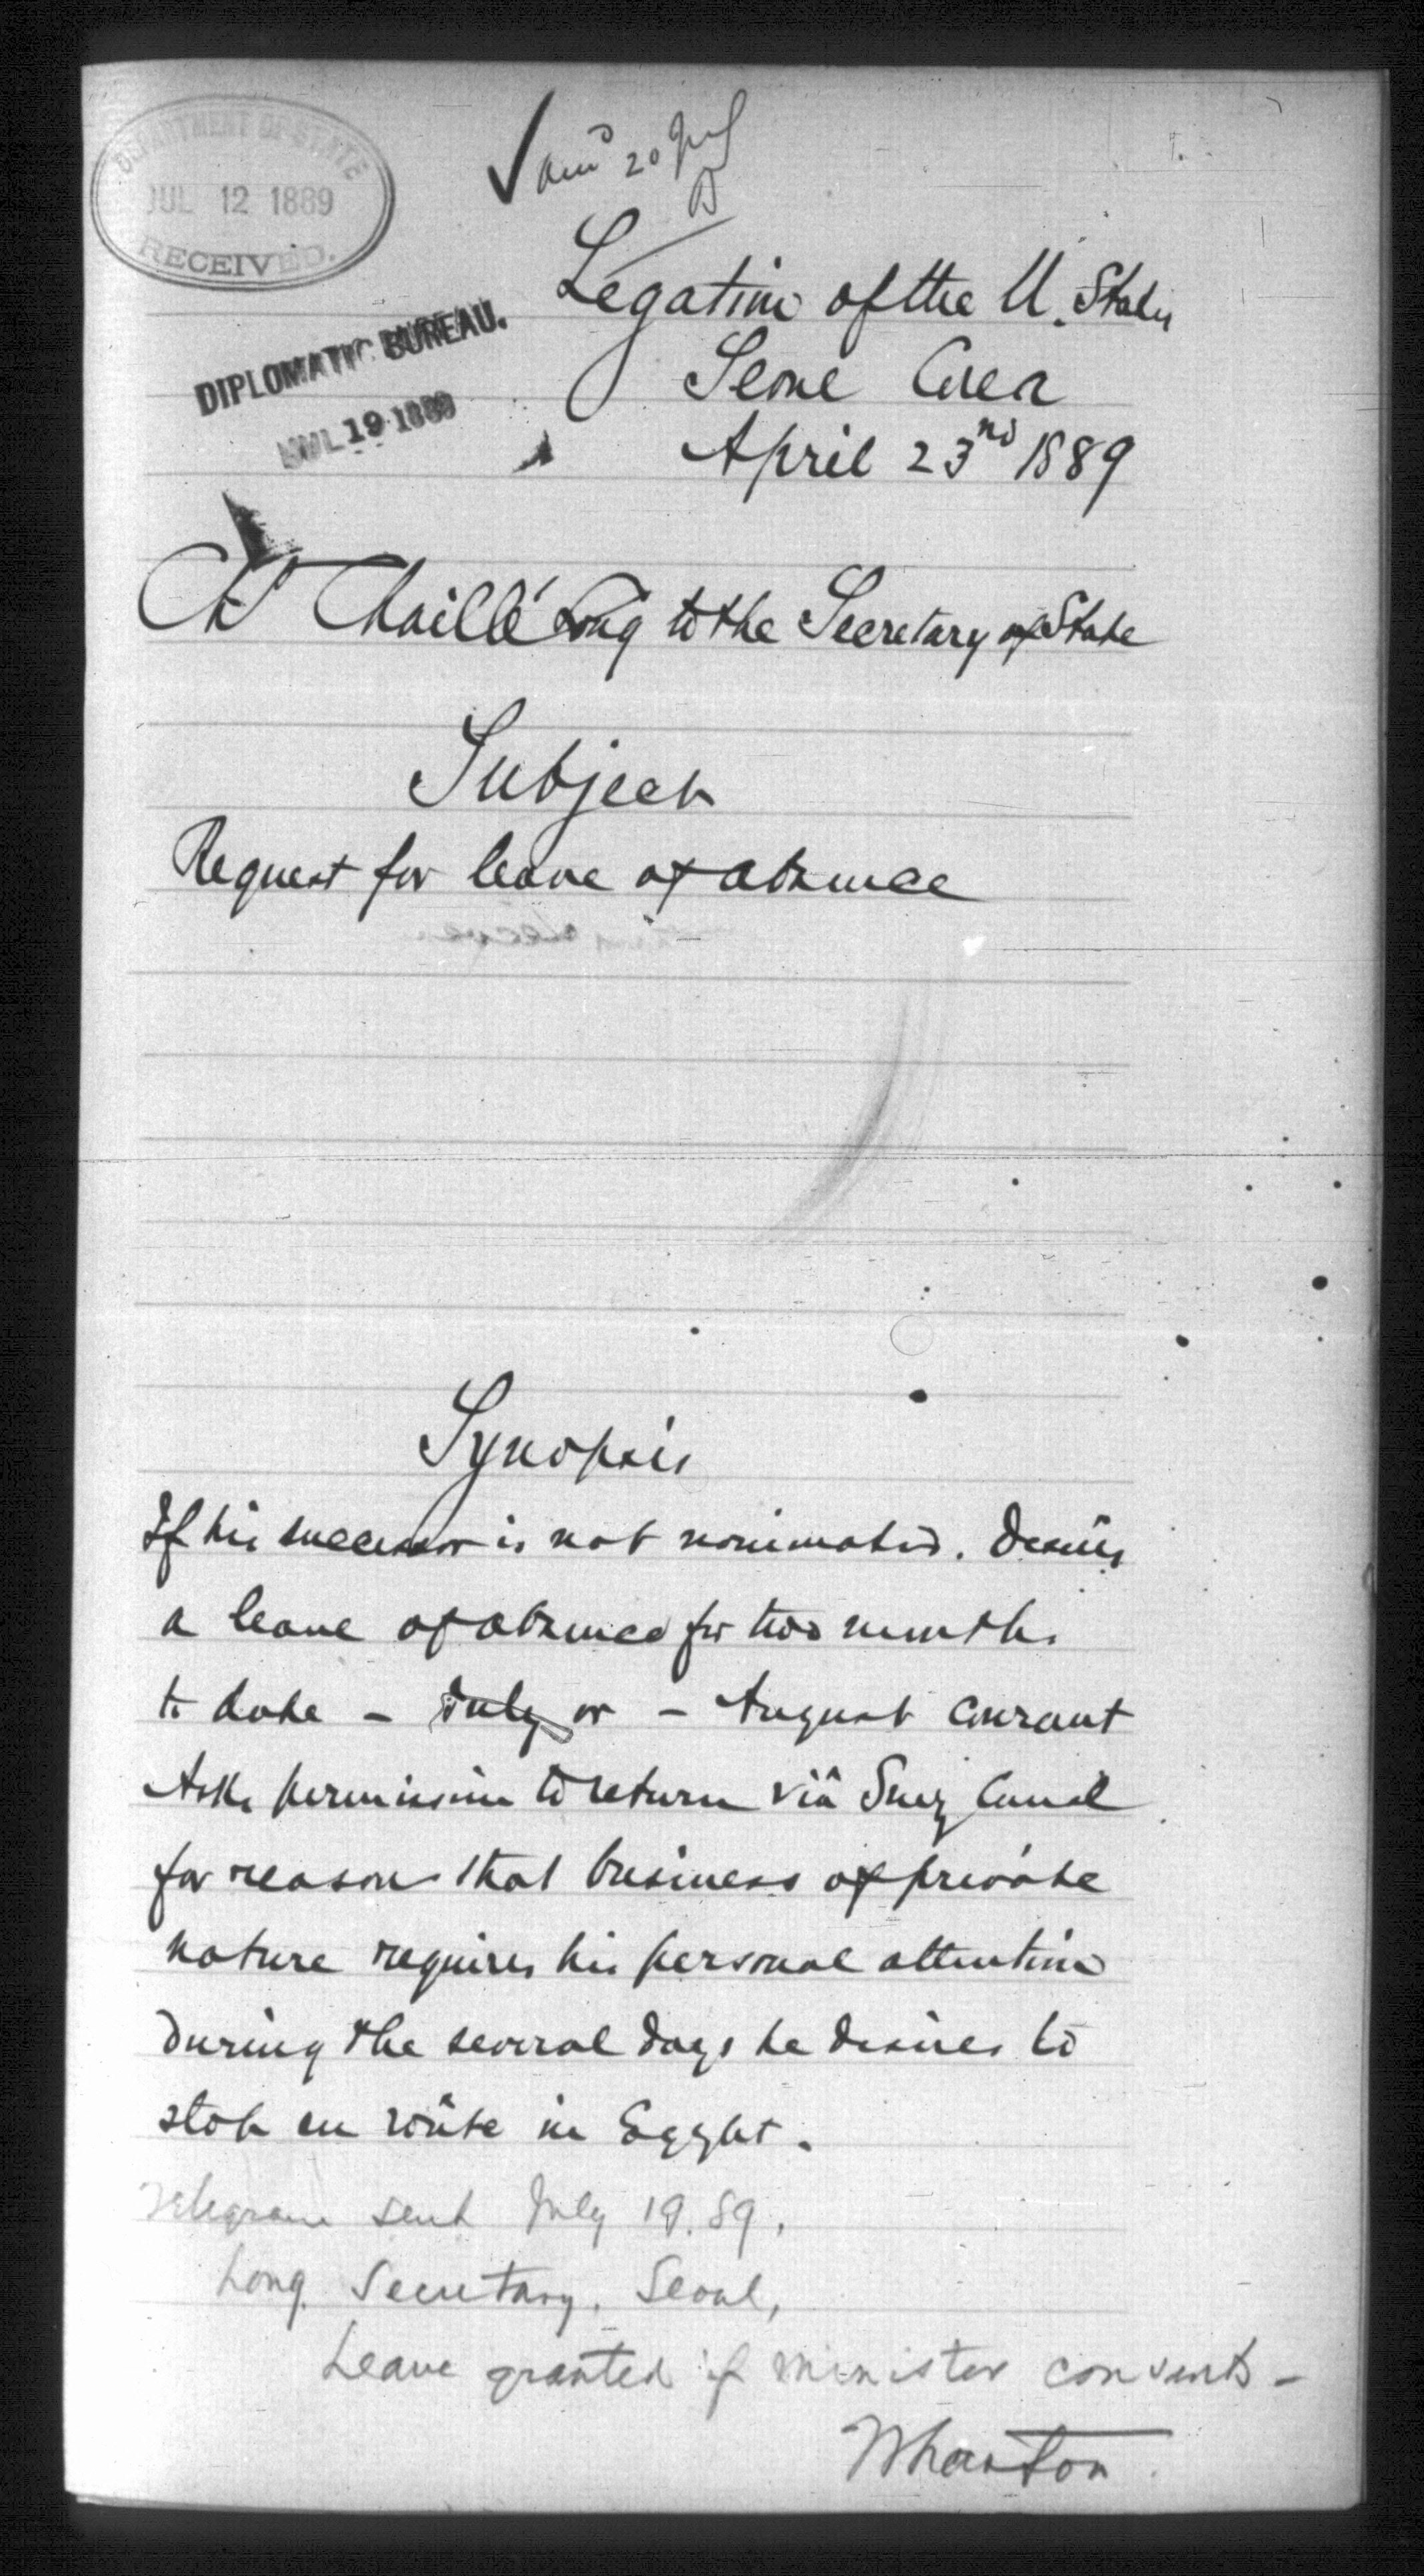 DEPARTMENT OF STATE
JUL 12 1889
RECEIVED.
20 July
DIPLOMATIC BUREAU.
JUL 19 1889
Legation of the U. States
Seoul Corea
April 23nd 1889
Ch Chaillé Long to the Secretary of State
Subject
Request for leave of absence
Synopsis
If his successor is not nominated. Desires
a leave of absence for two months
to date - July or - August courant
Asks permission to return via Suez Canal
for reason that business of private
nature requires his personal attention
during the several days he desires to
stop en route in Egypt.
Telegram sent July 19. 89.
Long, Secretary, Seoul,
Leave granted if minister consents -
Wharton